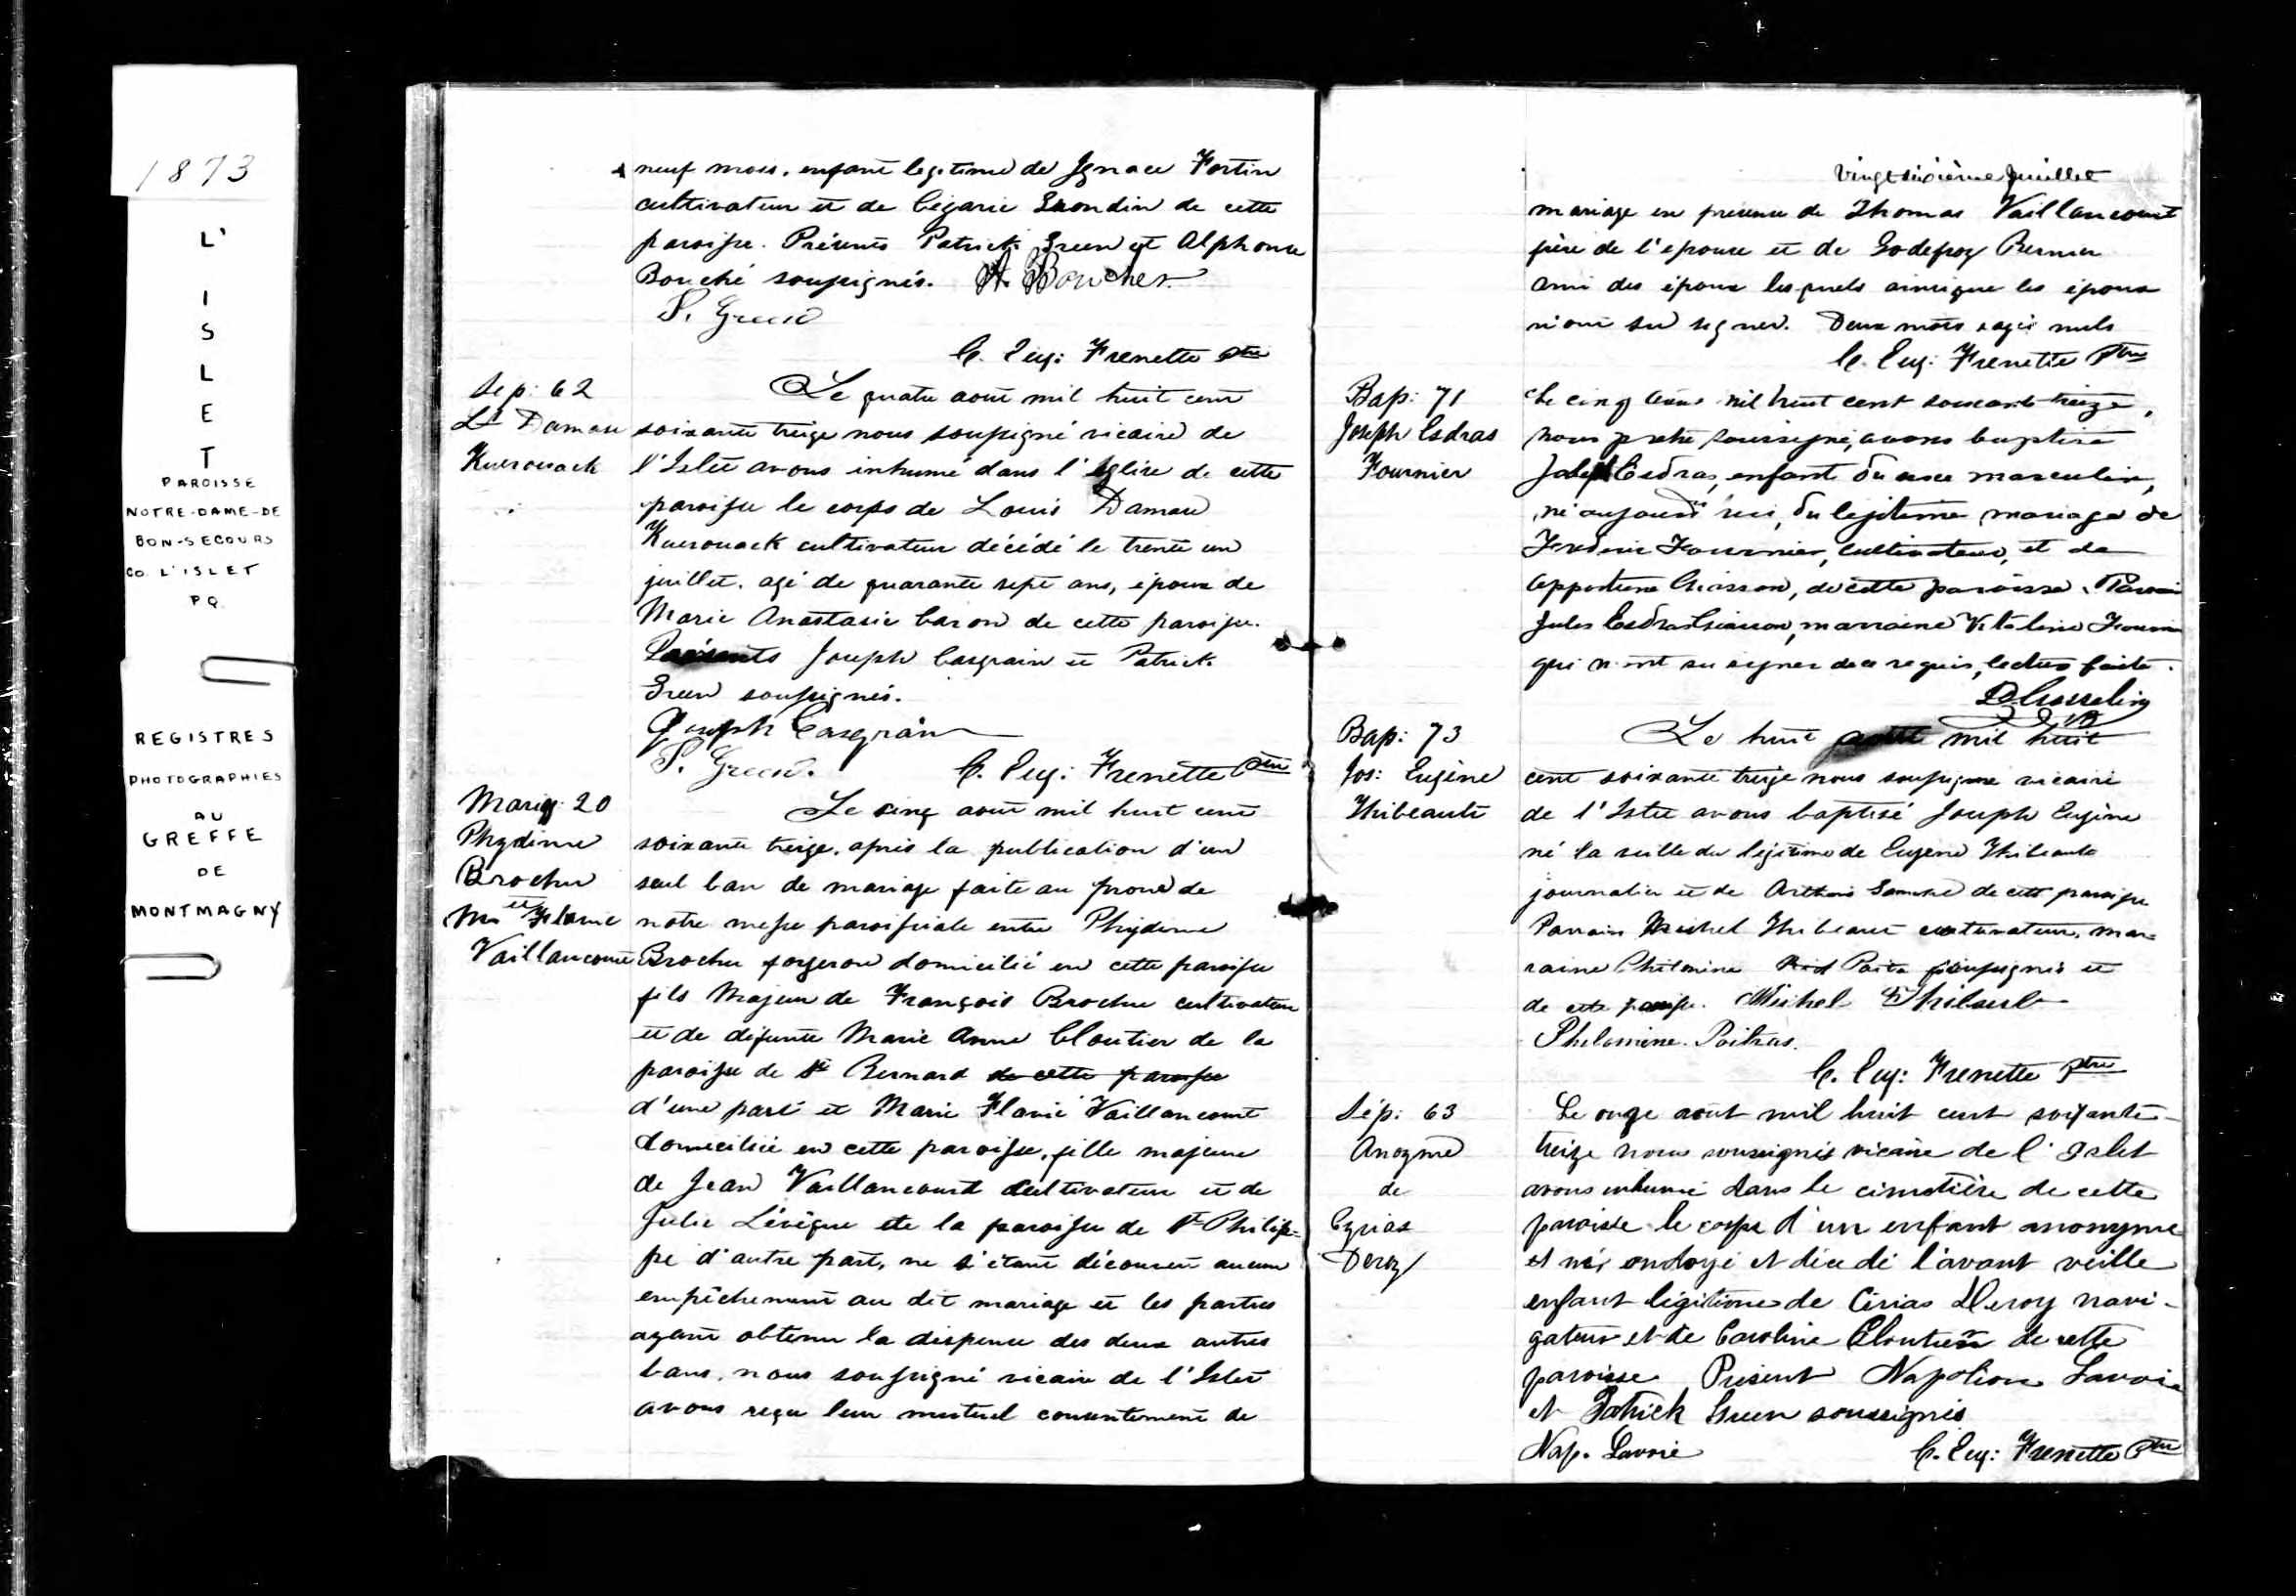 1873
L'
I
S
L
E
T
PAROISSE
NOTRE-DAME-DE
BON-SECOURS
CO. L'ISLET
P.Q.
REGISTRES
PHOTOGRAPHIES
AU
GREFFE
DE
MONTMAGNY
neuf mois, enfant legitime de Ignace Fortin
cultivateur et de Cézarie Grondin de cette
paroisse. Présents Patrick Green et Alphonse
Bouché soussignés. A. Boucher
P. Green
C. Eug: Frenette Ptre
Sep: 62
Ls Damase
Kuerouack
Le quatre août mil huit cent
soixante treize nous soussigné vicaire de
l'Islet avons inhumé dans l'Eglise de cette
paroisse le corps de Louis Damase
Kuerouack cultivateur décédé le trente un
juillet. agé de quarante sept ans, époux de
Marie Anastasie Caron de cette paroisse.
Présents Joseph Casgrain et Patrick
Green soussignés.
Joseph Casgrain
P. Green. C. Eug: Frenette Ptre
Mariag: 20
Phydime
Brochu
et
Me Flavie
Vaillancourt
Le cinq août mil huit cent
soixante treize, après la publication d'un
seul ban de mariage faite au prone de
notre messe paroissiale entre Phydime
Brochu forgeron domicilié en cette paroisse
fils Majeur de François Brochu cultivateur
et de defunte Marie Anne Cloutier de la
paroisse de St Bernard de cette paroisse
d'une part et Marie Flavie Vaillancourt
domiciliée en cette paroisse, fille majeure
de Jean Vaillancourt cultivateur et de
Julie Lévêque de la paroisse de St Philip=
pe d'autre part, ne s'étant découvert aucun
empêchement au dit mariage et les parties
ayant obtenu la dispense des deux autres
bans, nous soussigné vicaire de l'Islet
avons reçu leur mutuel consentement de
vingt sixième Juillet
mariage en presence de Thomas Vaillancourt
frère de l'epouse et de Godefroy Bernier
ami des époux lesquels ainsi que les époux
n'ont su signer. Deux mots rayés nuls
C. Eug: Frenette Ptre
Bap: 71
Joseph Esdras
Fournier
Le cinq Aout mil huit cent soixante treize,
nous pretre soussigné, avons baptisé
Joseph Esdras, enfant du sexe masculin,
né aujourd'hui, du legitime mariage de
Frederic Fournier, cultivateur, et de
Appoline Chiasson, de cette paroisse. Parrain
Jules Esdras Chiasson, marraine Vitaline Fournier
qui n'ont su signer de ce requis, lecture faite.
D Gosselin
Ptre
Bap: 73
Jos: Eugène
Thibeault
Le huit août mil huit
cent soixante treize nous soussigné vicaire
de l'Islet avons baptisé Joseph Eugène
né la veille du légitime de Eugène Thibeault
journalier et de de cette paroisse
Parrain Michel Thibeault cultivateur, mar=
raine Philomine soussignés et
de cette paroisse. Michel Thibault
Philomine Poitras.
C. Eug: Frenette Ptre
Sép: 63
Anoyme
de
Cyrias
Deroy
Le onze août mil huit cent soixante-
treize nous soussignés vicaire de l'Islet
avons inhumé dans le cimetière de cette
paroisse le corps d'un enfant anonyme
et né, ondoyé et décédé l'avant veille
enfant légitime de Cirias Deroy navi-
gateur et de Caroline Cloutier de cette
paroisse Présent Napoléon Lavoie
et Patrick Green soussignés
Nap. Lavoie C. Eug: Frenette Ptre